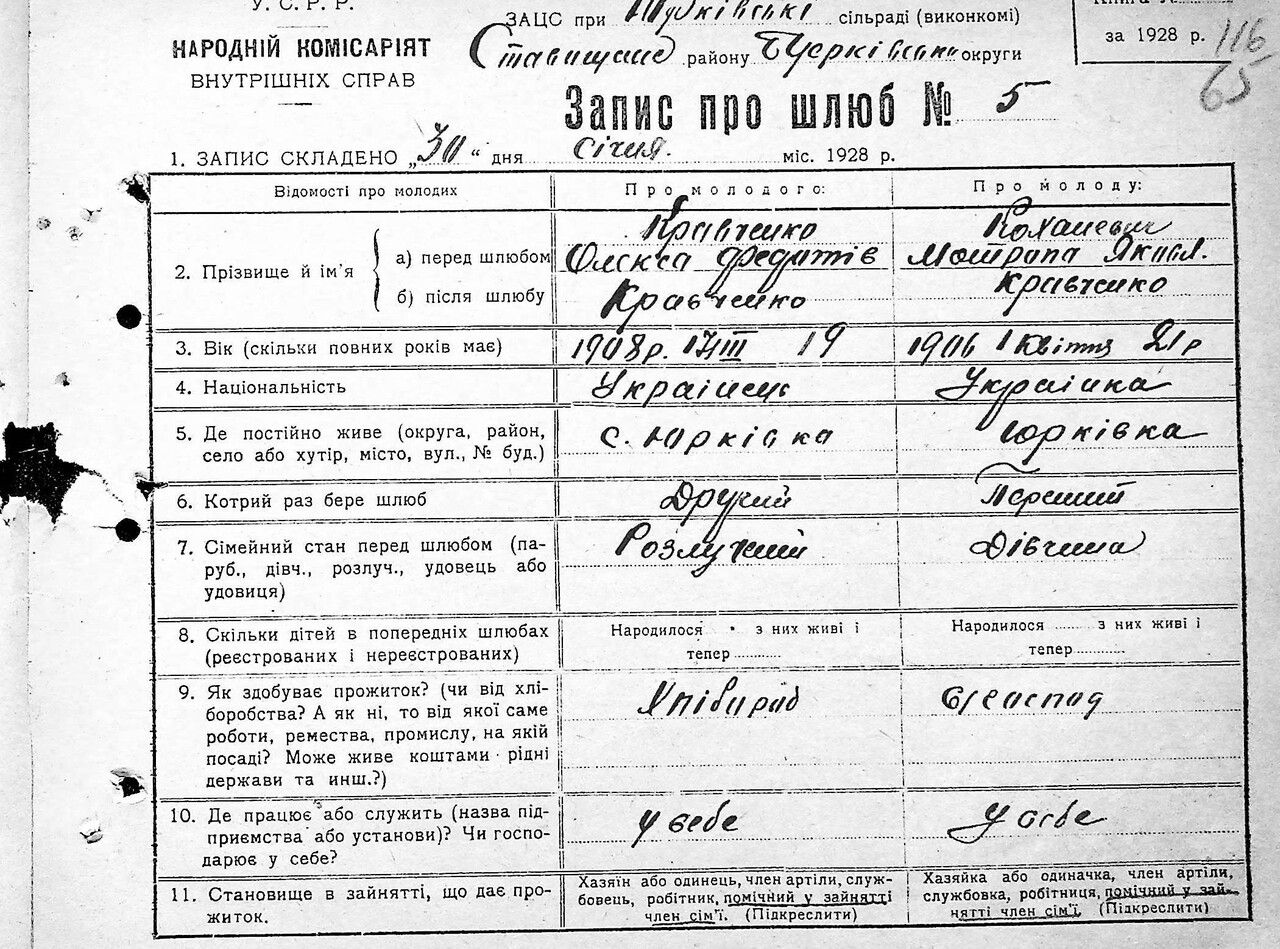 У. С. Р. Р.
НАРОДНІЙ КОМІСАРІЯТ
ВНУТРІШНІХ СПРАВ
ЗАЦС при сільраді (виконкомі)
Ставищане району округи
за 1928 р. 116
65
Запис про шлюб № 5
1. ЗАПИС СКЛАДЕНО „30“ дня січня. міс. 1928 р.
Відомості про молодих
Про молодого:
Про молоду:
2. Прізвище й ім’я
а) перед шлюбом
б) після шлюбу
Кравченко
Олекса Федотів
Кравченко
Коханевич
Мотрина Яковл.
Кравченко
3. Вік (скільки повних років має)
1908 р. 17/III 19
1906 1 квітня 21 р
4. Національність
Українець
Українка
5. Де постійно живе (округа, район,
село або хутір, місто, вул., № буд.)
с. Юрківка
Юрківка
6. Котрий раз бере шлюб
Другий
Перший
7. Сімейний стан перед шлюбом (па-
руб., дівч., розлуч., удовець або
удовиця)
Розлучений
Дівчина
8. Скільки дітей в попередніх шлюбах
(реєстрованих і нереєстрованих)
Народилося з них живі і
тепер
Народилося з них живі і
тепер
9. Як здобуває прожиток? (чи від хлі-
боробства? А як ні, то від якої саме
роботи, ремества, промислу, на якій
посаді? Може живе коштами рідні
держави та инш.?)
Хлібороб
10. Де працює або служить (назва під-
приємства або установи)? Чи госпо-
дарює у себе?
у себе
у себе
11. Становище в зайнятті, що дає про-
житок.
Хазяїн або одинець, член артіли, служ-
бовець, робітник, помічний у зайнятті
член сім’ї. (Підкреслити)
Хазяйка або одиначка, член артіли,
службовка, робітниця, помічний у зай-
нятті член сім’ї. (Підкреслити)